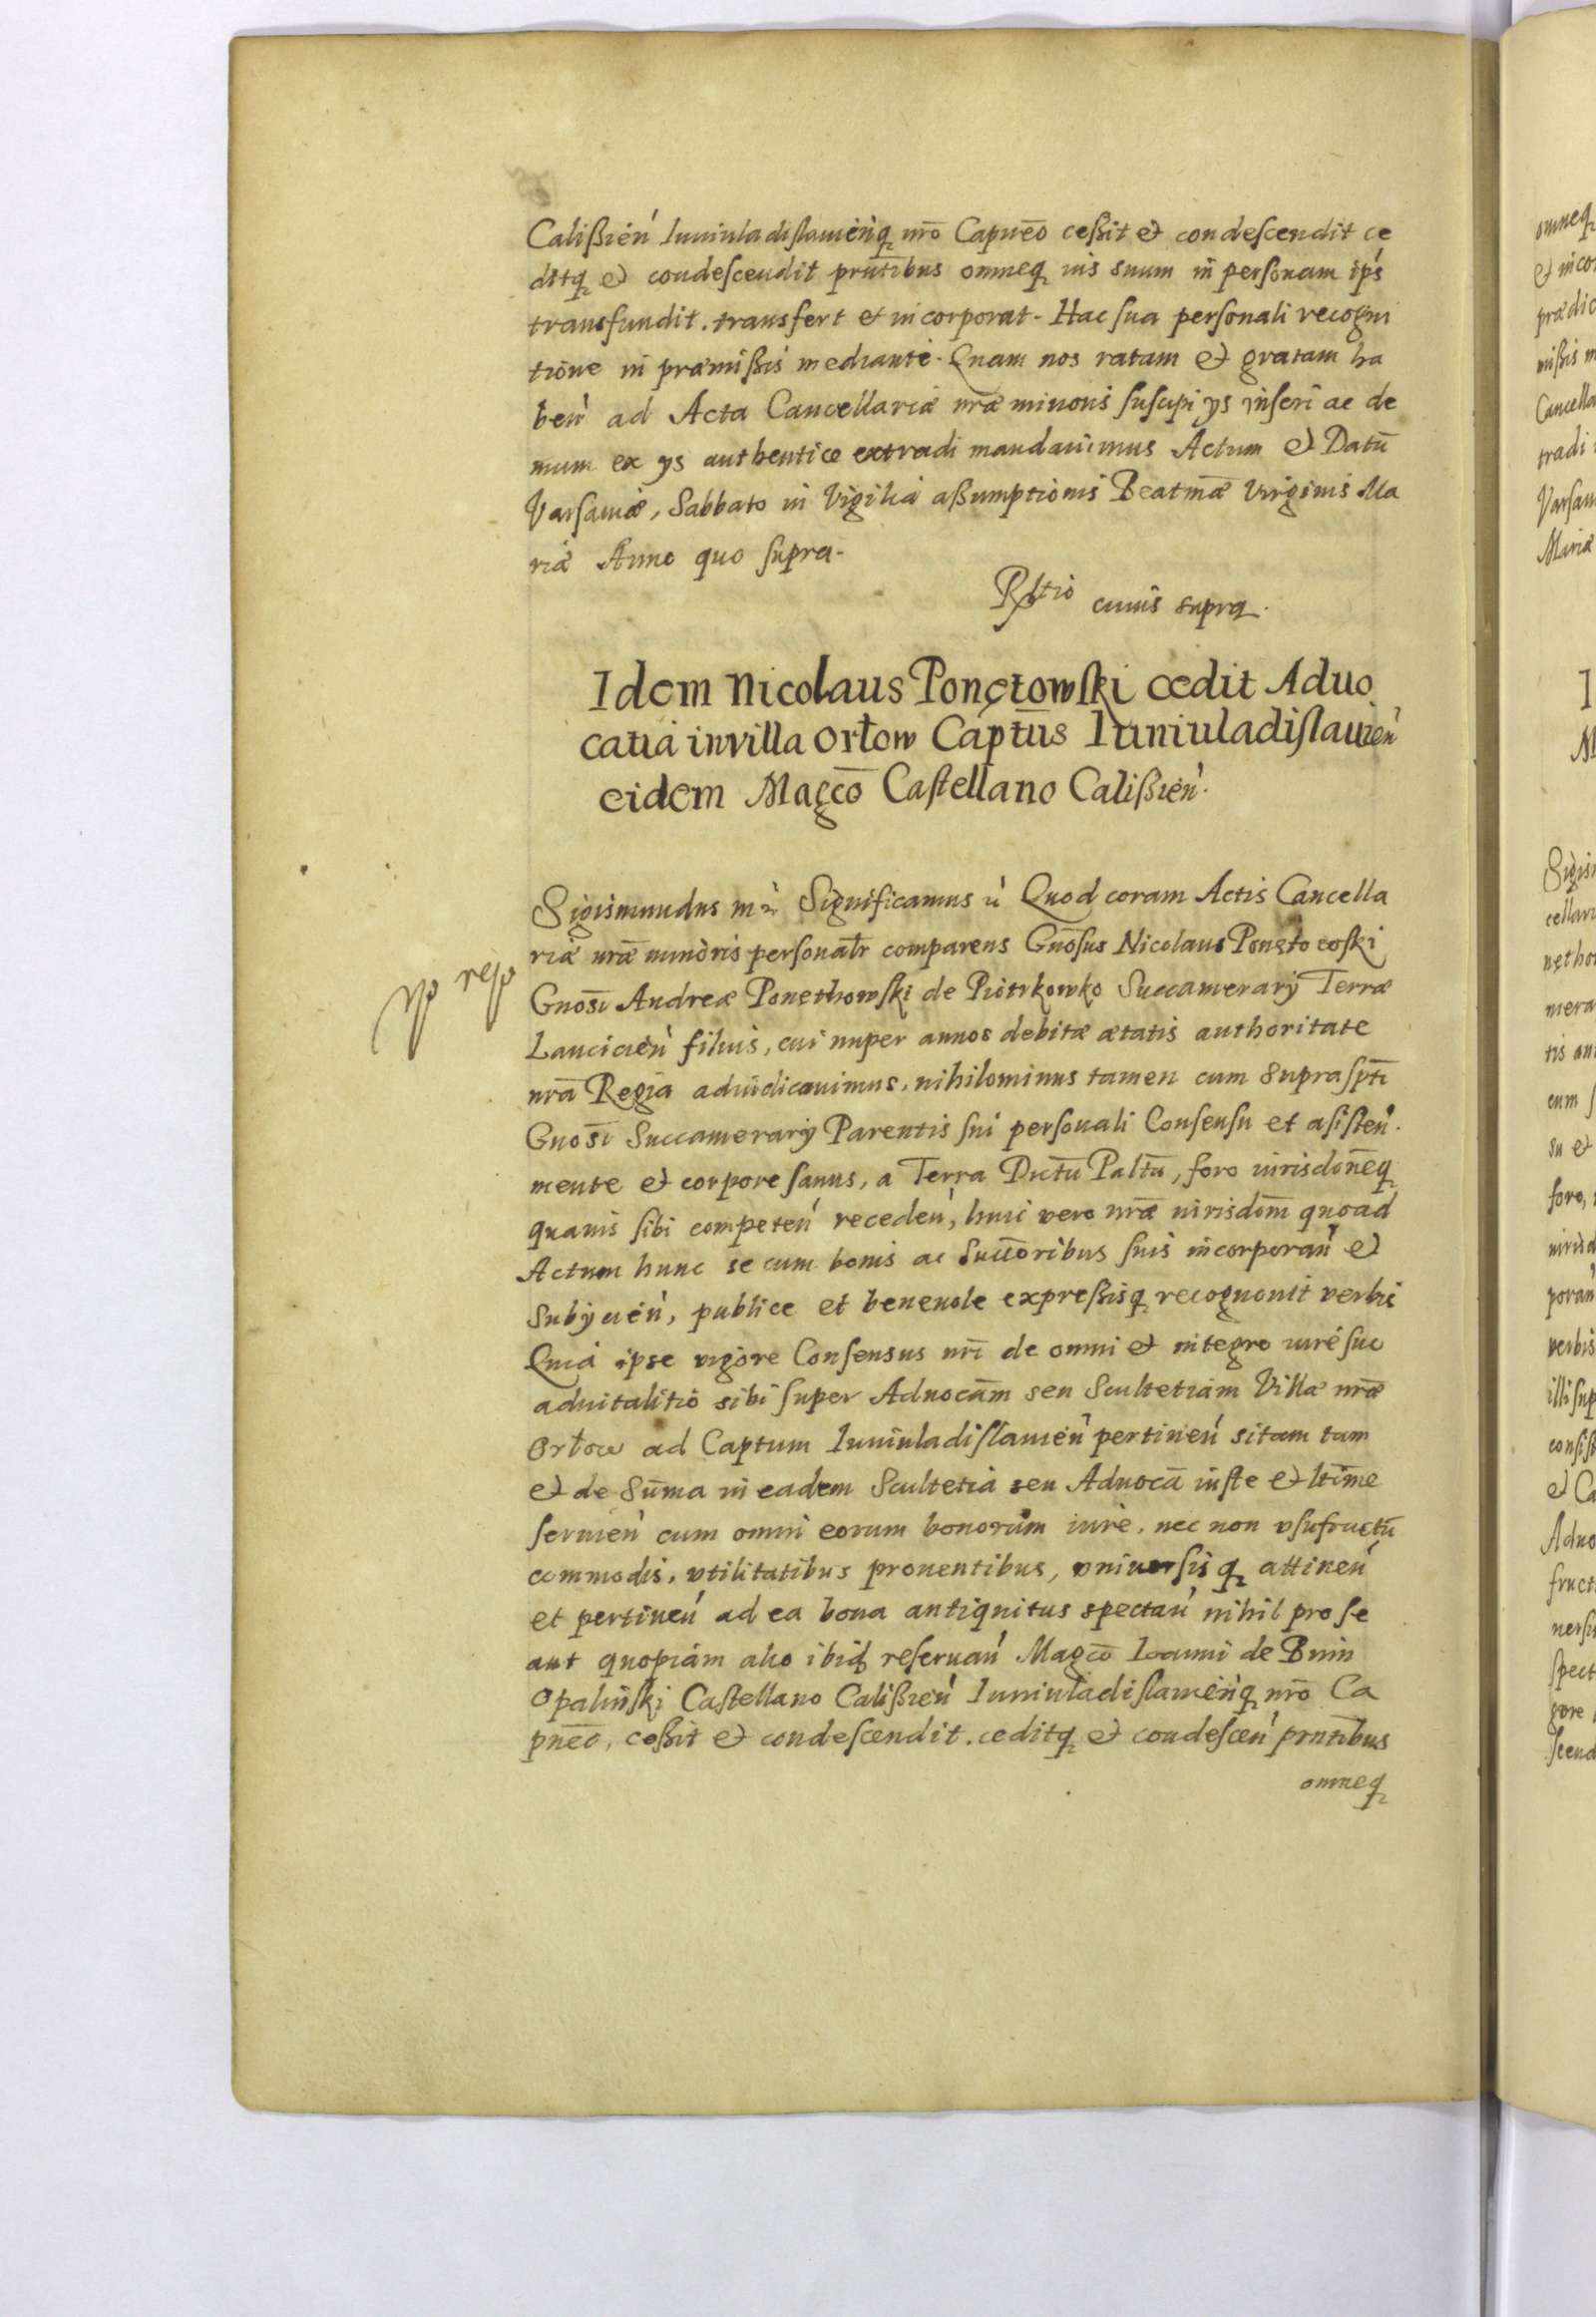 Calißien̕ Iuniuladislauien̕q nrō Capneō ceßit et condescendit ce
ditq et condescendit prn̄tibus omneq ius suum in personam ip̕s
transfundit. transfert et incorporat. Hac sua personali recogni
tione in præmißis mediante. Quam nos ratam et gratam ha
ben̕ ad Acta Cancellariæ nr̄æ minoris suscipi ys inseri ac de
mum ex ys authentice extradi mandauimus Actum et Datū
Varsauiæ, Sabbato in Vigilia aßumptionis Beatmǣ Virginis Ma
riæ Anno quo supra.
Rltio cuius supra.
Idem Nicolaus Ponętowski cedit Aduo
catia in villa Orłow Captūs Iuniuladislauien̕
eidem Magcō Castellano Calißien̕.
Sigismundus Significamus Quod coram Actis Cancella
riæ nr̄æ minoris personalr̄ comparens Gnōsus Nicolaus Ponętowski
Gnosī Andreæ Ponęthowski de Piotrkowko Succamerarÿ Terræ
Lanciciēn̕ filius, cui nuper annos debitæ ætatis authoritate
nrā Regia adiudicauimus, nihilominus tamen cum supraspt̄i
Gnosī Succamerarÿ Parentis sui personali Consensu et asisten̕.
mente et corpore sanus, a Terra Dictū Paltū, foro iurisdonēq
quauis sibi competen̕ receden̕, huic vero nrǣ iurisdōm quoad
Actum hunc se cum bonis ac succōribus suis incorporan̕ et
subÿcien̕, publice et beneuole expreßisq recognouit verbis
Quia ipse vigore Consensus nrī de omni et integro iure suo
aduitalitio sibi super Aduocām seu Scultetiam Villæ nrǣ
Orłow ad Captum Iuniuladislauien̕ pertinen̕ sitam tam
et de Sūma in eadem Scultetia seu Aduocā iuste et ltīme
seruien̕ cum omni eorum bonorum iure, nec non vsufructū
commodis, vtilitatibus prouentibus, vniuersisq attinen̕
et pertinen̕ ad ea bona antiquitus spectan̕ nihil pro se
aut quopiam alio ibid reseruan̕ Magcō Ioanni de Bnin
Opalinski Castellano Calißien̕ Iuniuladislauien̕q nrō Ca
pneō, ceßit et condescendit. ceditq et condescen̕ prntībus
omneq